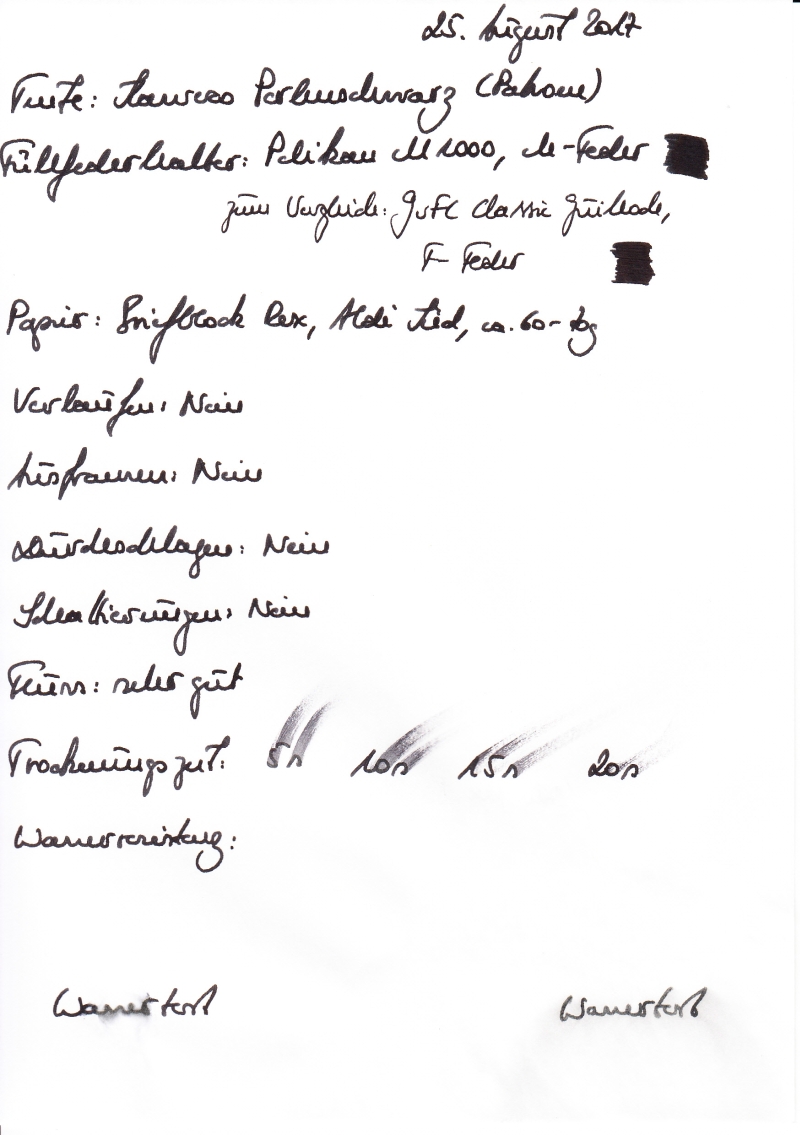 25. August 2017
Tinte: Kaweco Perlenschwarz (Patrone)
Füllfederhalter: Pelikan M1000, M-Feder
zum Vergleich: GvFC Classic Guilloche,
F-Feder
Papier: Briefblock Rex, Aldi Süd, ca. 60-70g
Verlaufen: Nein
Ausfransen: Nein
Durchschlagen: Nein
Schattierungen: Nein
Fluss: sehr gut
Trocknungszeit: 5s 10s 15s 20s
Wasserresistenz:
Wassertest Wassertest